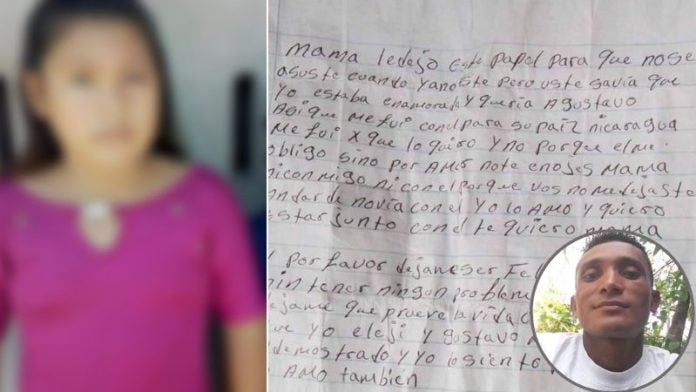 mama ledejo este papel para que nose
asuste cuando yanoste pero uste savia que
yo estaba enamorada y queria A gustavo
Asi que me fui conel para supaiz nicaragua
me fui x que lo quiero y no porque el me
obligo sino por AMOR note enojes mama
niconmigo ni conel porque vos nomedejaste
andar de novia con el yo lo AMO y quiero
estar junto con el te quiero mama
por favor dejameser
tener ningun
dejame que prueve la vida
yo eleji y gustavo
demostrado y yo losiento
AMO también